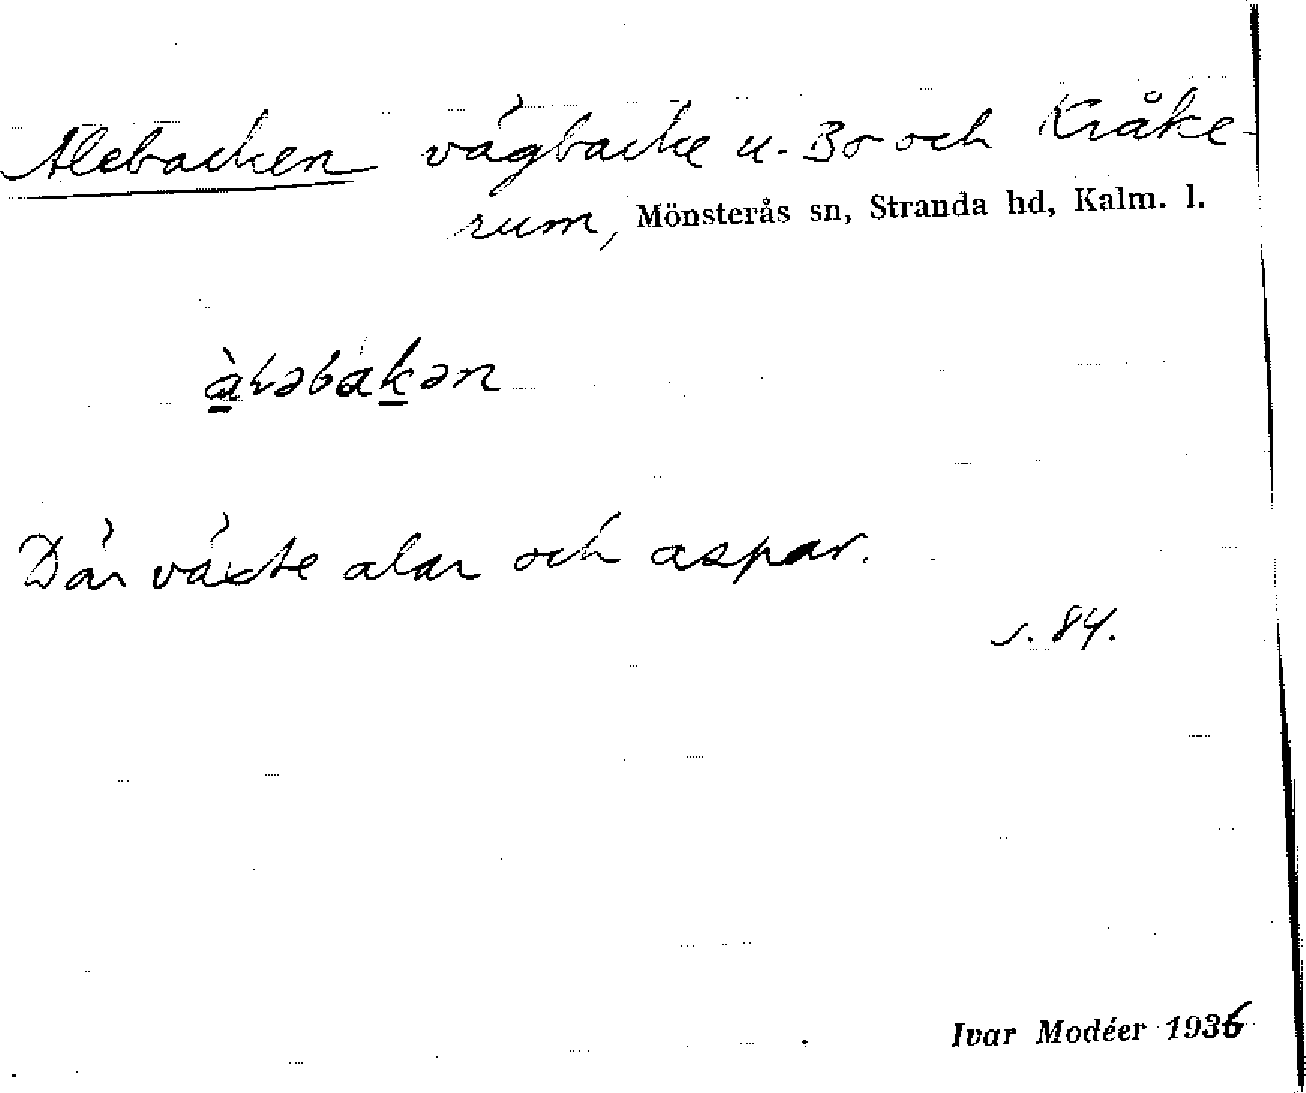 Alebacken vägbacke u. Bo och Kråke-
rum, Mönsterås sn, Stranda hd, Kalm. l.
àləbakən
Där växte alar och aspar.
s. 84.
Ivar Modéer 1936